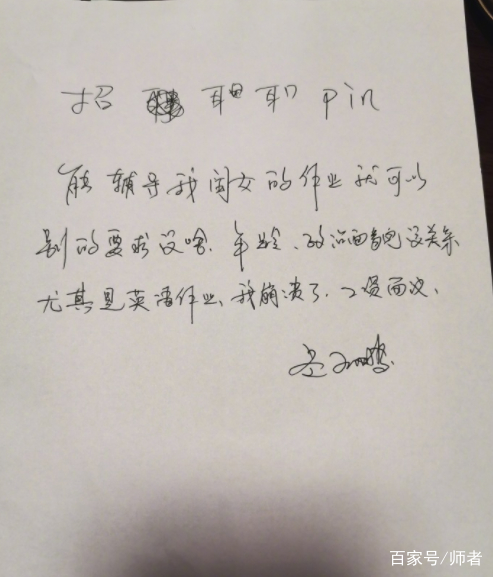 招 耳 耳 Pin
能辅导我闺女的作业就可以
别的要求没啥.年龄、政治面貌没关系
尤其是英语作业、我崩溃了.工资面议.
百家号/师者